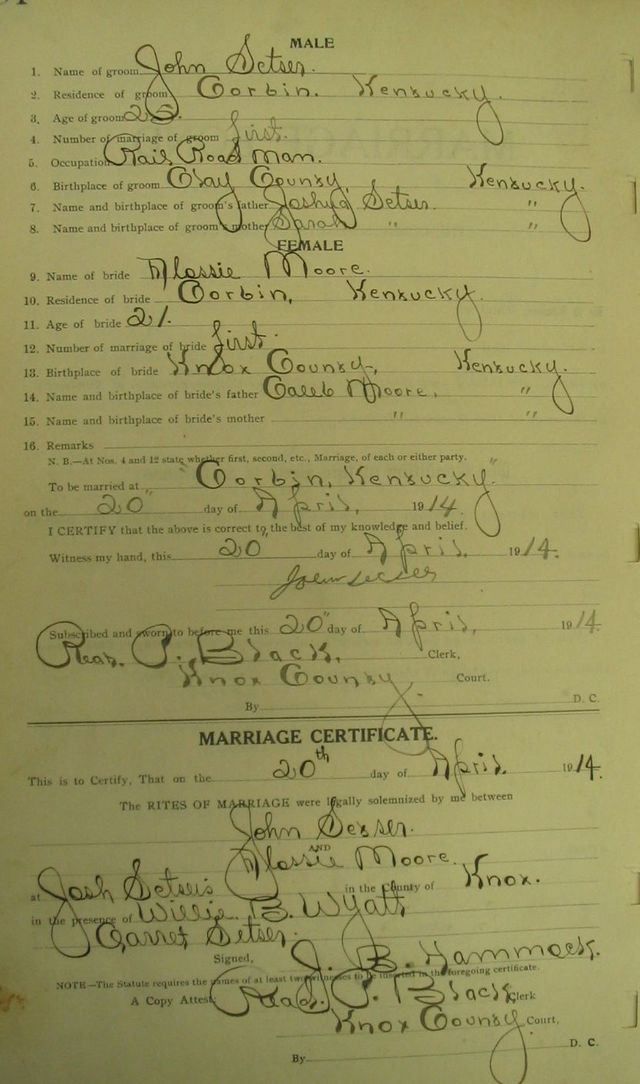 MALE
1. Name of groom John Setser.
2. Residence of groom Corbin. Kentucky.
3. Age of groom
4. Number of marriage of groom first.
5. Occupation Rail Road man.
6. Birthplace of groom Clay County, Kentucky.
7. Name and birthplace of groom's father Joshua Setser. "
8. Name and birthplace of groom's mother Sarah " "
FEMALE
9. Name of bride Flossie Moore.
10. Residence of bride Corbin, Kentucky.
11. Age of bride 21.
12. Number of marriage of bride first.
13. Birthplace of bride Knox County, Kentucky.
14. Name and birthplace of bride's father Caleb Moore, "
15. Name and birthplace of bride's mother " "
16. Remarks
N. B.—At Nos. 4 and 12 state whether first, second, etc., Marriage, of each or either party.
To be married at Corbin, Kentucky.
on the 20" day of April, 1914.
I CERTIFY that the above is correct to the best of my knowledge and belief.
Witness my hand, this 20 day of April. 1914.
John Setser
Subscribed and sworn to before me this 20" day of April, 1914.
Read P. Black, Clerk,
Knox County Court.
By D. C.
MARRIAGE CERTIFICATE.
This is to Certify, That on the 20th day of April. 1914.
The RITES OF MARRIAGE were legally solemnized by me between
John Setser.
AND
Flossie Moore.
at Josh Setser's in the County of Knox.
in the presence of Willie B. Wyatt,
Garret Setser.
Signed, J. B. Hammock.
NOTE—The Statute requires the names of at least two witnesses to be inserted in the foregoing certificate.
A Copy Attest: Read P. Black, Clerk
Knox County Court,
By D. C.